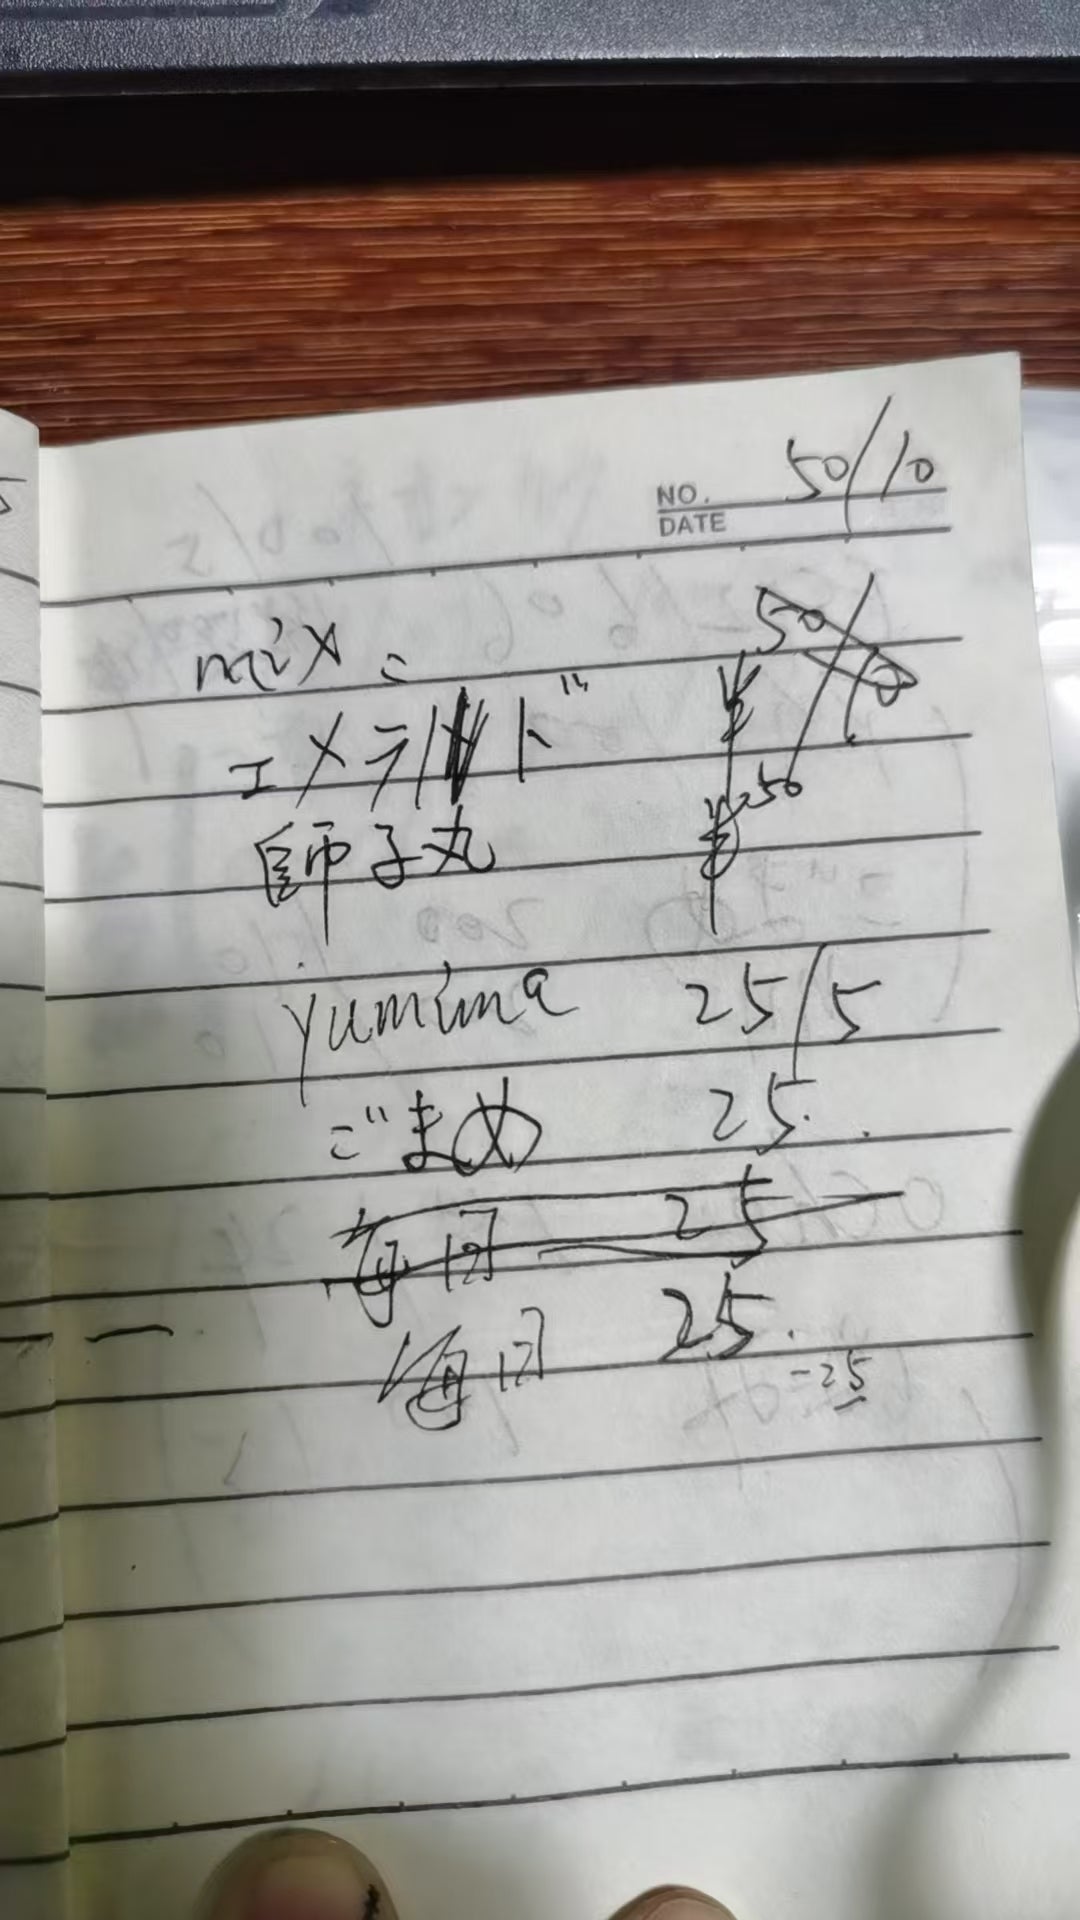 NO. 50/10
DATE
mix 50/10
エメラルド
-50
師子丸
yumima 25/5
ごまめ 25.
每回 25
每回 25.
-25